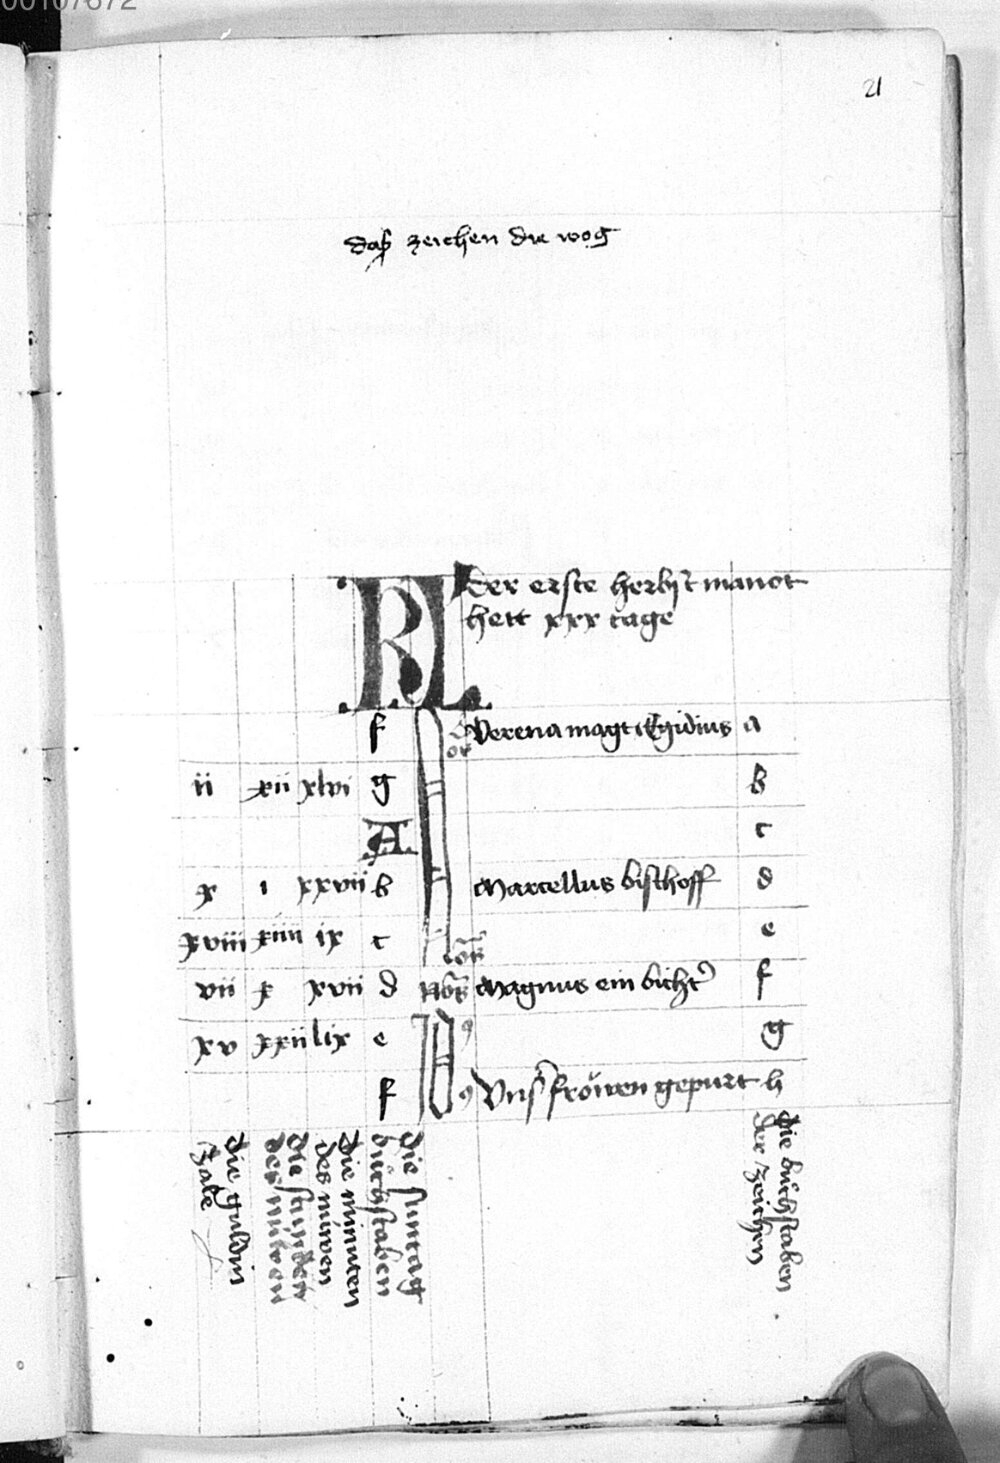 00107672
21
daß zeichen die wog
KL der erste herbst manot
hett xxx tage
f Verena magt Egidius a
ii xii xlvi g b
A c
x i xxvii b Marcellus bischoff d
xviii xiiii ix c e
vii x xvii d Magnus ein bicht' f
xv xxii lix e g
f Uns' fröwen gepurt h
die guldin
zale
die stunden
des nuwen
die minuten
des nuwen
die suntag
buchstaben
die buchstaben
der zeichen